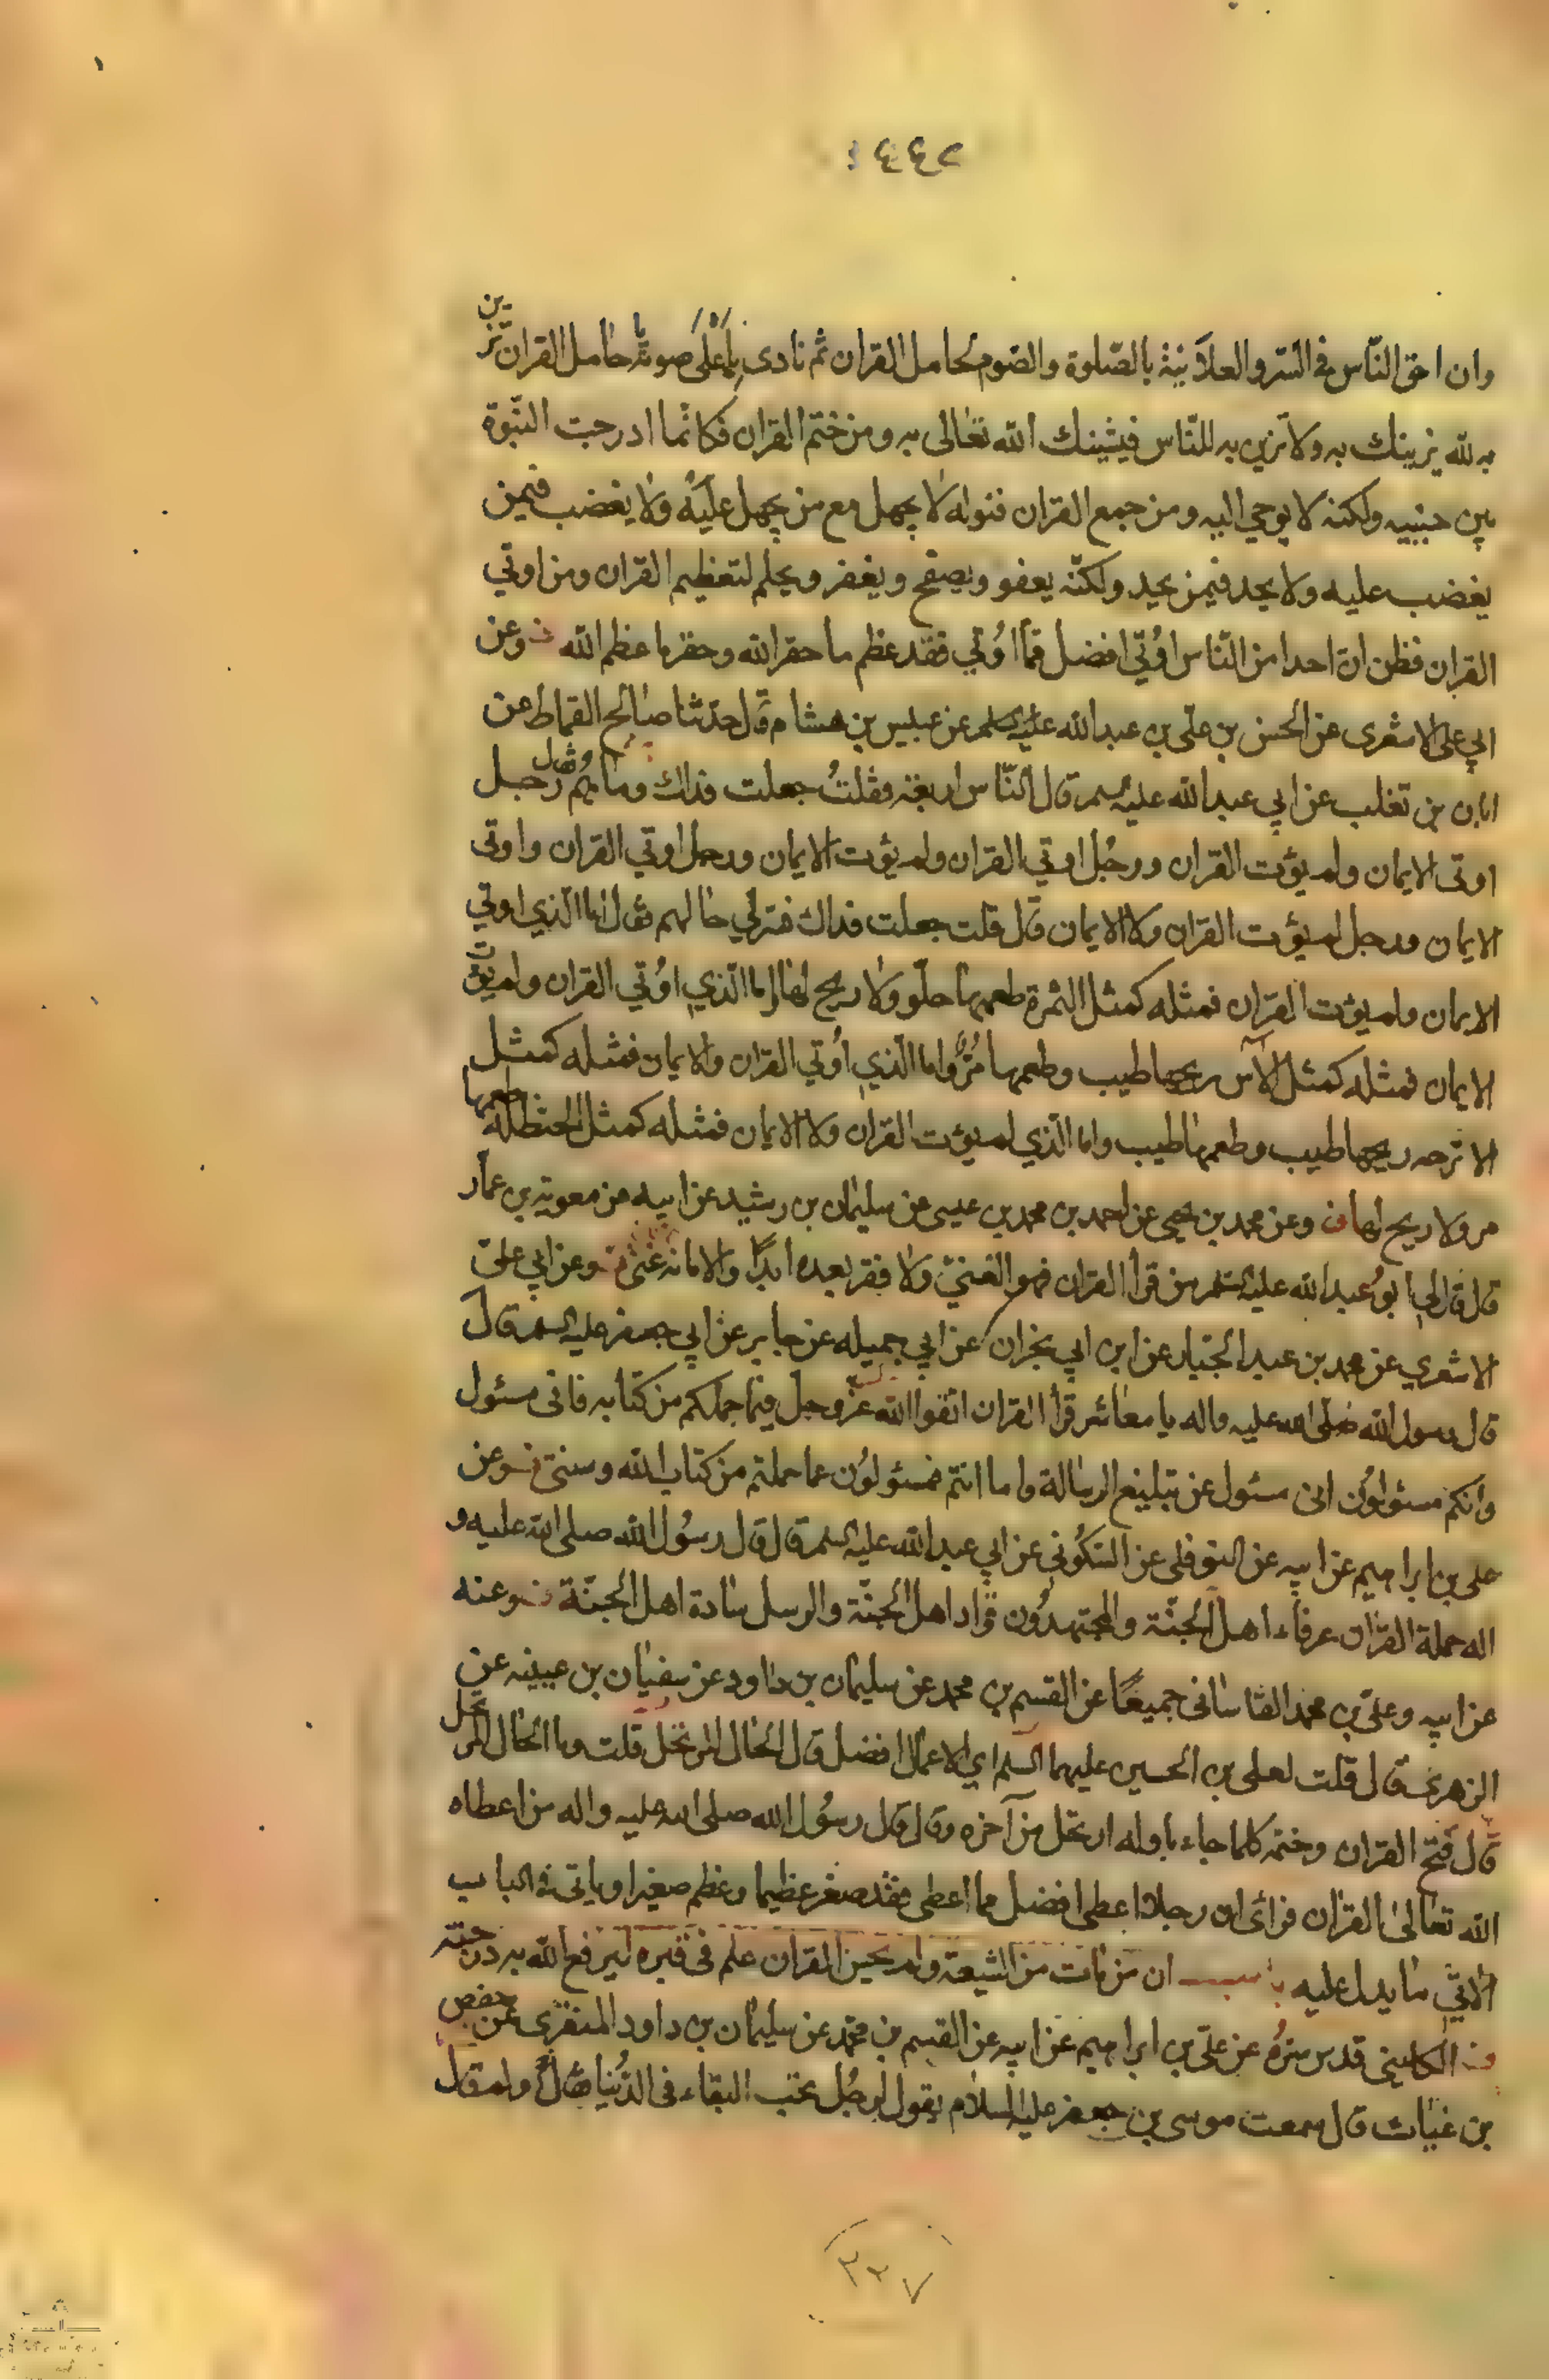 ١٤٤٢
وان احق الناس في السر والعلانية بالصلوة والصوم لحامل القران ثم نادى باعلى صوته يا حامل القران تزين
به لله يزينك به ولا تزين به للناس فيشينك الله تعالى به ومن ختم القران فكانما ادرجت النبوة
بين جنبيه ولكنه لا يوحي اليه ومن جمع القران فنوله لا يجهل مع من يجهل عليه ولا يغضب فيمن
يغضب عليه ولا يحد فيمن يحد ولكنه يعفو ويصفح ويغفر ويحلم لتعظيم القران ومن اوتي
القران فظن ان احدا من الناس اوتي افضل مما اوتي فقد عظم ما حقر الله وحقر ما عظم الله وعن
ابي علي الاشعري عن الحسن بن علي بن عبد الله عليه السلم عن عبيس بن هشام قال حدثنا صالح القماط عن
ابان بن تغلب عن ابي عبد الله عليه السلم قال الناس اربعة فقلت جعلت فداك وما هم فقال رجل
اوتى الايمان ولم يؤت القران ورجل اوتي القران ولم يؤت الايمان ورجل اوتي القران واوتى
الايمان ورجل لم يؤت القران ولا الايمان قال قلت جعلت فداك فسر لي حالهم فقال اما الذي اوتي
الايمان ولم يؤت القران فمثله كمثل الثمرة طعمها حلو ولا ريح لها واما الذي اوتي القران ولم يؤت
الايمان فمثله كمثل الآس ريحها طيب وطعمها مر واما الذي اوتي القران والايمان فمثله كمثل
الاترجه ريحها طيب وطعمها طيب واما الذي لم يؤت القران ولا الايمان فمثله كمثل الحنظلة طعمها
مر ولا ريح لها وعن محمد بن يحيى عن احمد بن محمد بن عيسى عن سليمان بن رشيد عن ابيه عن معوية بن عمار
قال قال لي ابو عبد الله عليه السلم من قرأ القران فهو الغني ولا فقر بعده ابدا والا ما به غنى وعن ابي علي
الاشعري عن محمد بن عبد الجبار عن ابن ابي نجران عن ابي جميله عن جابر عن ابي جعفر عليه السلم قال
قال رسول الله صلى الله عليه واله يا معاشر قرأ القران اتقوا الله عز وجل فيما حملكم من كتابه فانى مسئول
وانكم مسئولون انى مسئول عن تبليغ الرسالة واما انتم فمسئولون عما حملتم من كتاب الله وسنتي وعن
على بن ابراهيم عن ابيه عن النوفلى عن السكوني عن ابي عبد الله عليه السلم قال قال رسول الله صلى الله عليه و
اله حملة القران عرفاء اهل الجنة والمجتهدون قواد اهل الجنة والرسل سادة اهل الجنة وعنه
عن ابيه وعلى بن محمد القاسانى جميعا عن القسم بن محمد عن سليمان بن داود عن سفيان بن عيينه عن
الزهري قال قلت لعلى بن الحسين عليهما السلم اي الاعمال افضل قال الحال المرتحل قلت وما الحال المرتحل
قال فتح القران وختمه كلما جاء باوله ارتحل من آخره وقال قال رسول الله صلى الله عليه واله من اعطاه
الله تعالى القران فرائ ان رجلا اعطى افضل مما اعطى فقد صغر عظيما وعظم صغيرا وياتى في الباب
الاتي ما يدل عليه باب ان من مات من الشيعة ولم يحسن القران علم في قبره ليرفع الله به درجته
الكلينى قدس سره عن على بن ابراهيم عن ابيه عن القسم بن محمد عن سليمان بن داود المنقرى عن حفص
بن غياث قال سمعت موسى بن جعفر عليه السلام يقول لرجل تحب البقاء في الدنيا قال ولم قال
٢٣٧